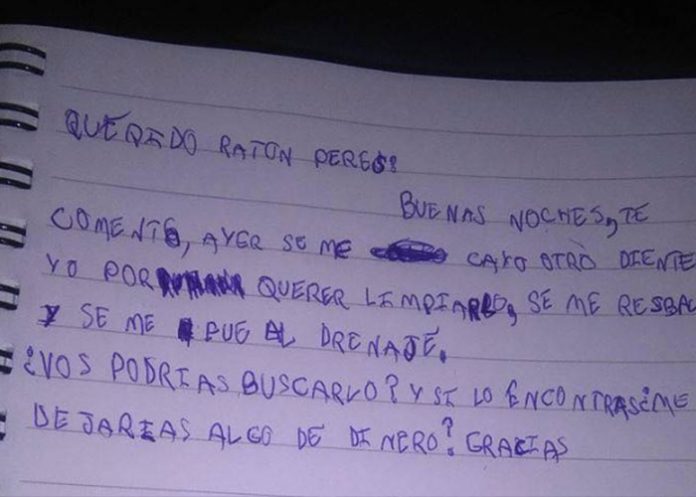 QUERIDO RATON PERES:
BUENAS NOCHES, TE
COMENTO, AYER SE ME CAYO OTRO DIENTE
YO POR QUERER LIMPIARLO, SE ME RESBAL
Y SE ME FUE AL DRENAJE.
¿VOS PODRIAS BUSCARLO? Y SI LO ENCONTRAS ¿ME
DEJARIAS ALGO DE DINERO? GRACIAS